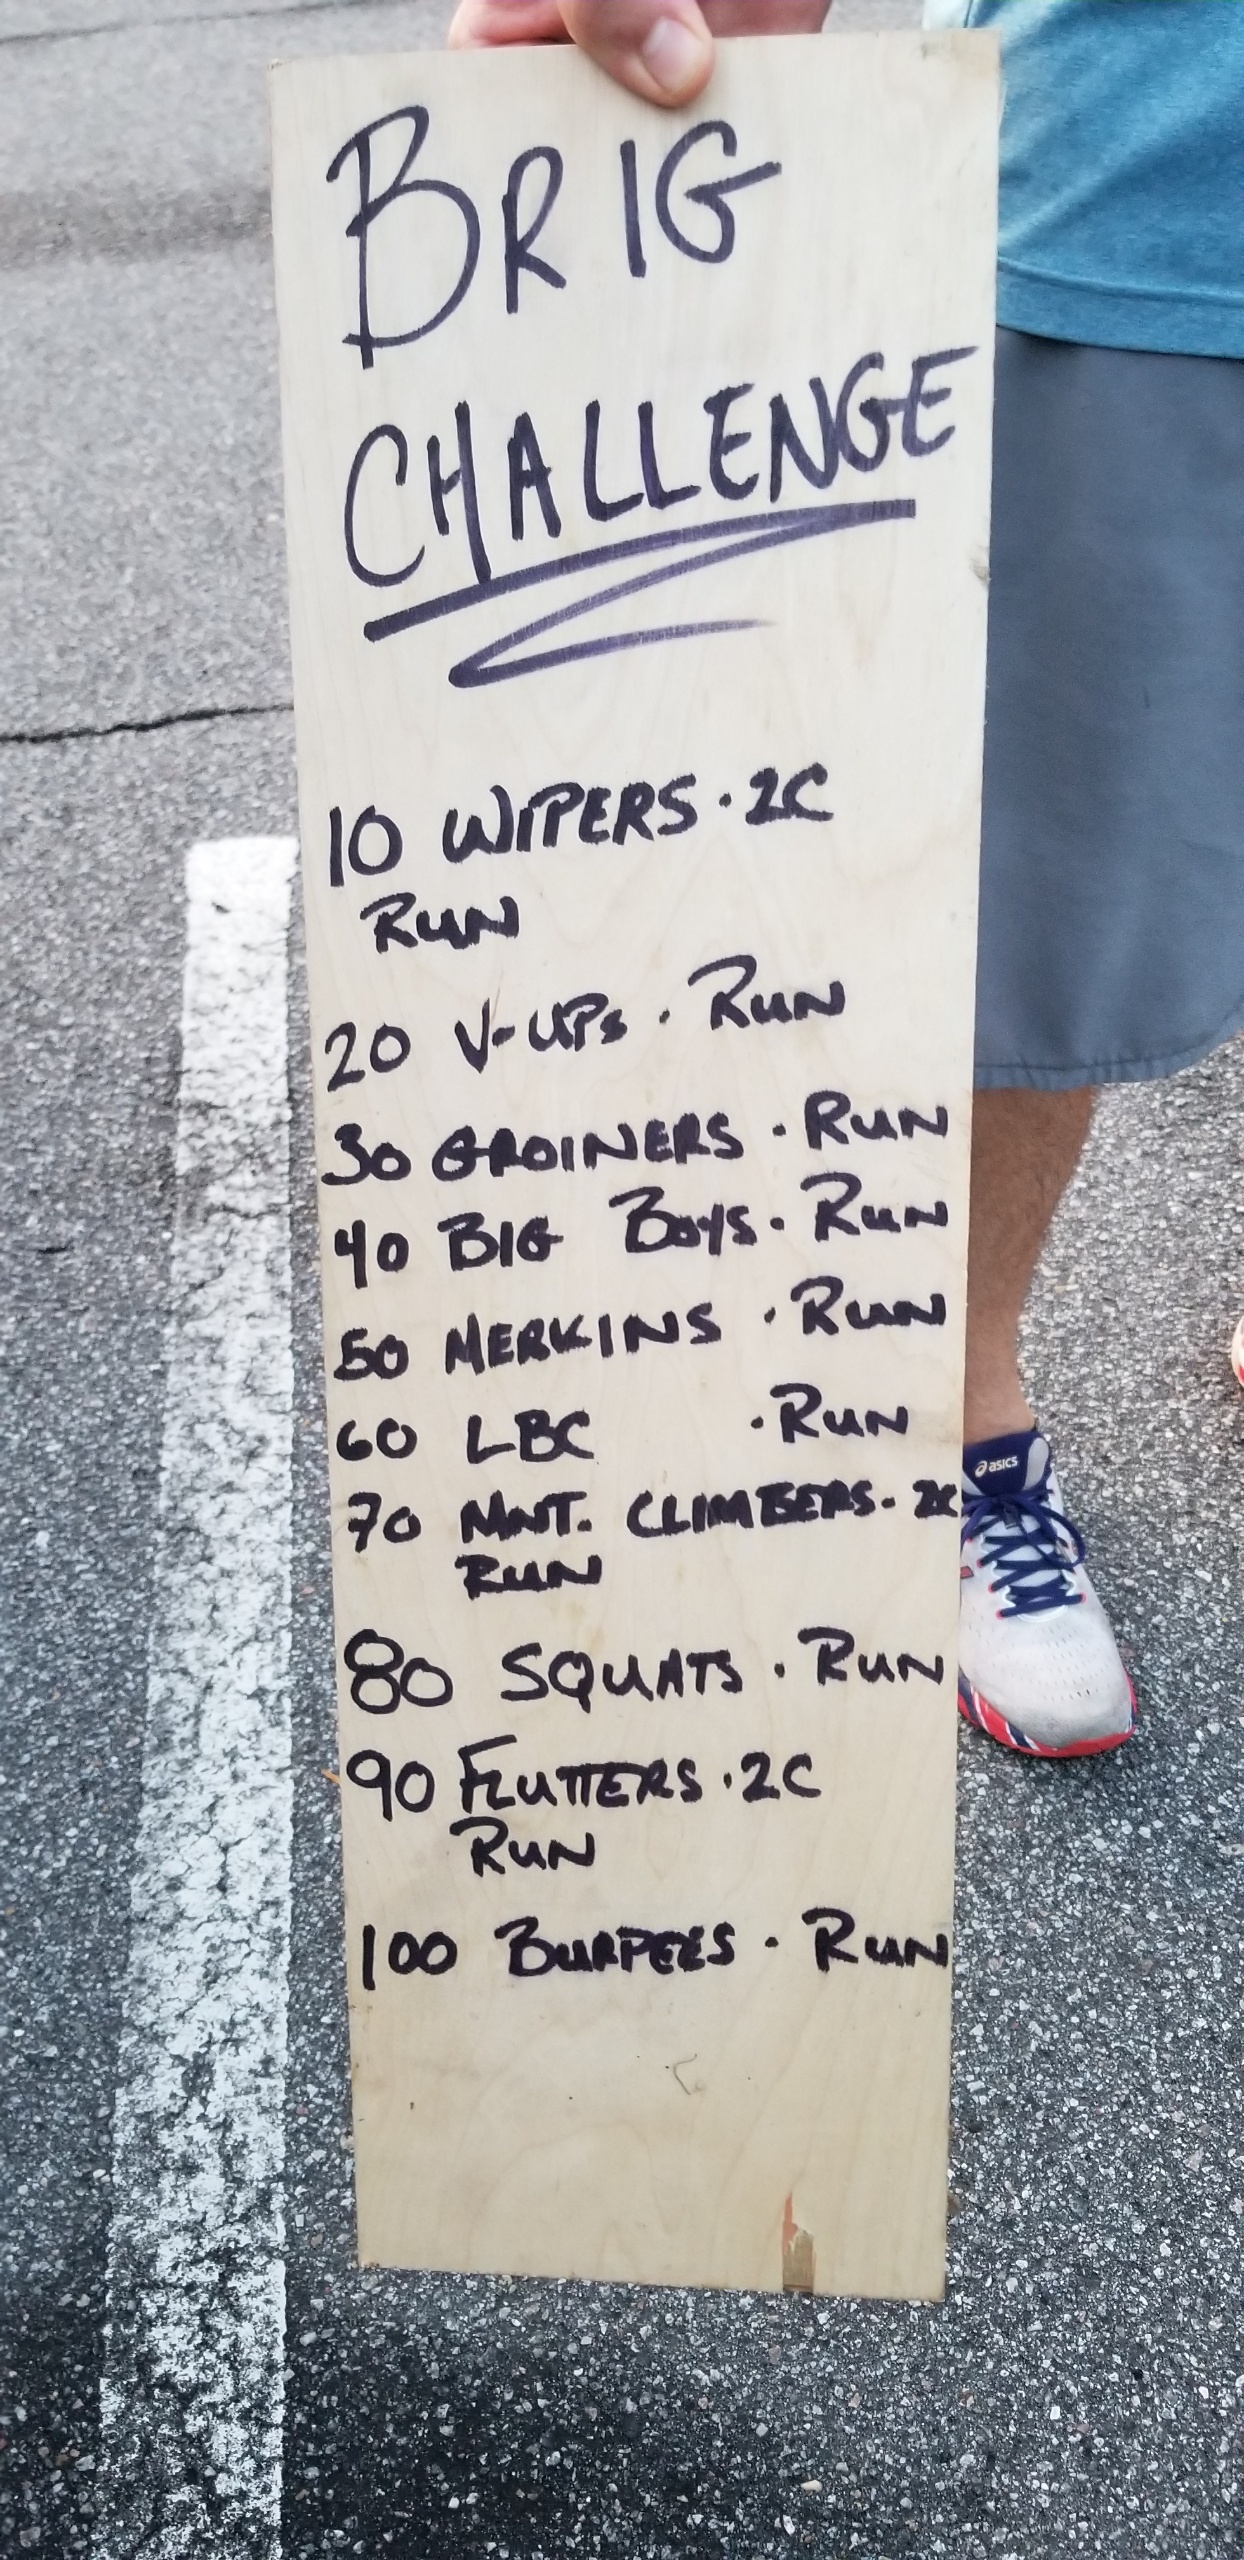 BRIG
CHALLENGE
10 WIPERS · 2C
RUN
20 V-UPs · RUN
30 GROINERS · RUN
40 BIG BOYS · RUN
50 MERKINS · RUN
60 LBC · RUN
70 MNT. CLIMBERS · 2C
RUN
80 SQUATS · RUN
90 FLUTTERS · 2C
RUN
100 BURPEES · RUN
asics